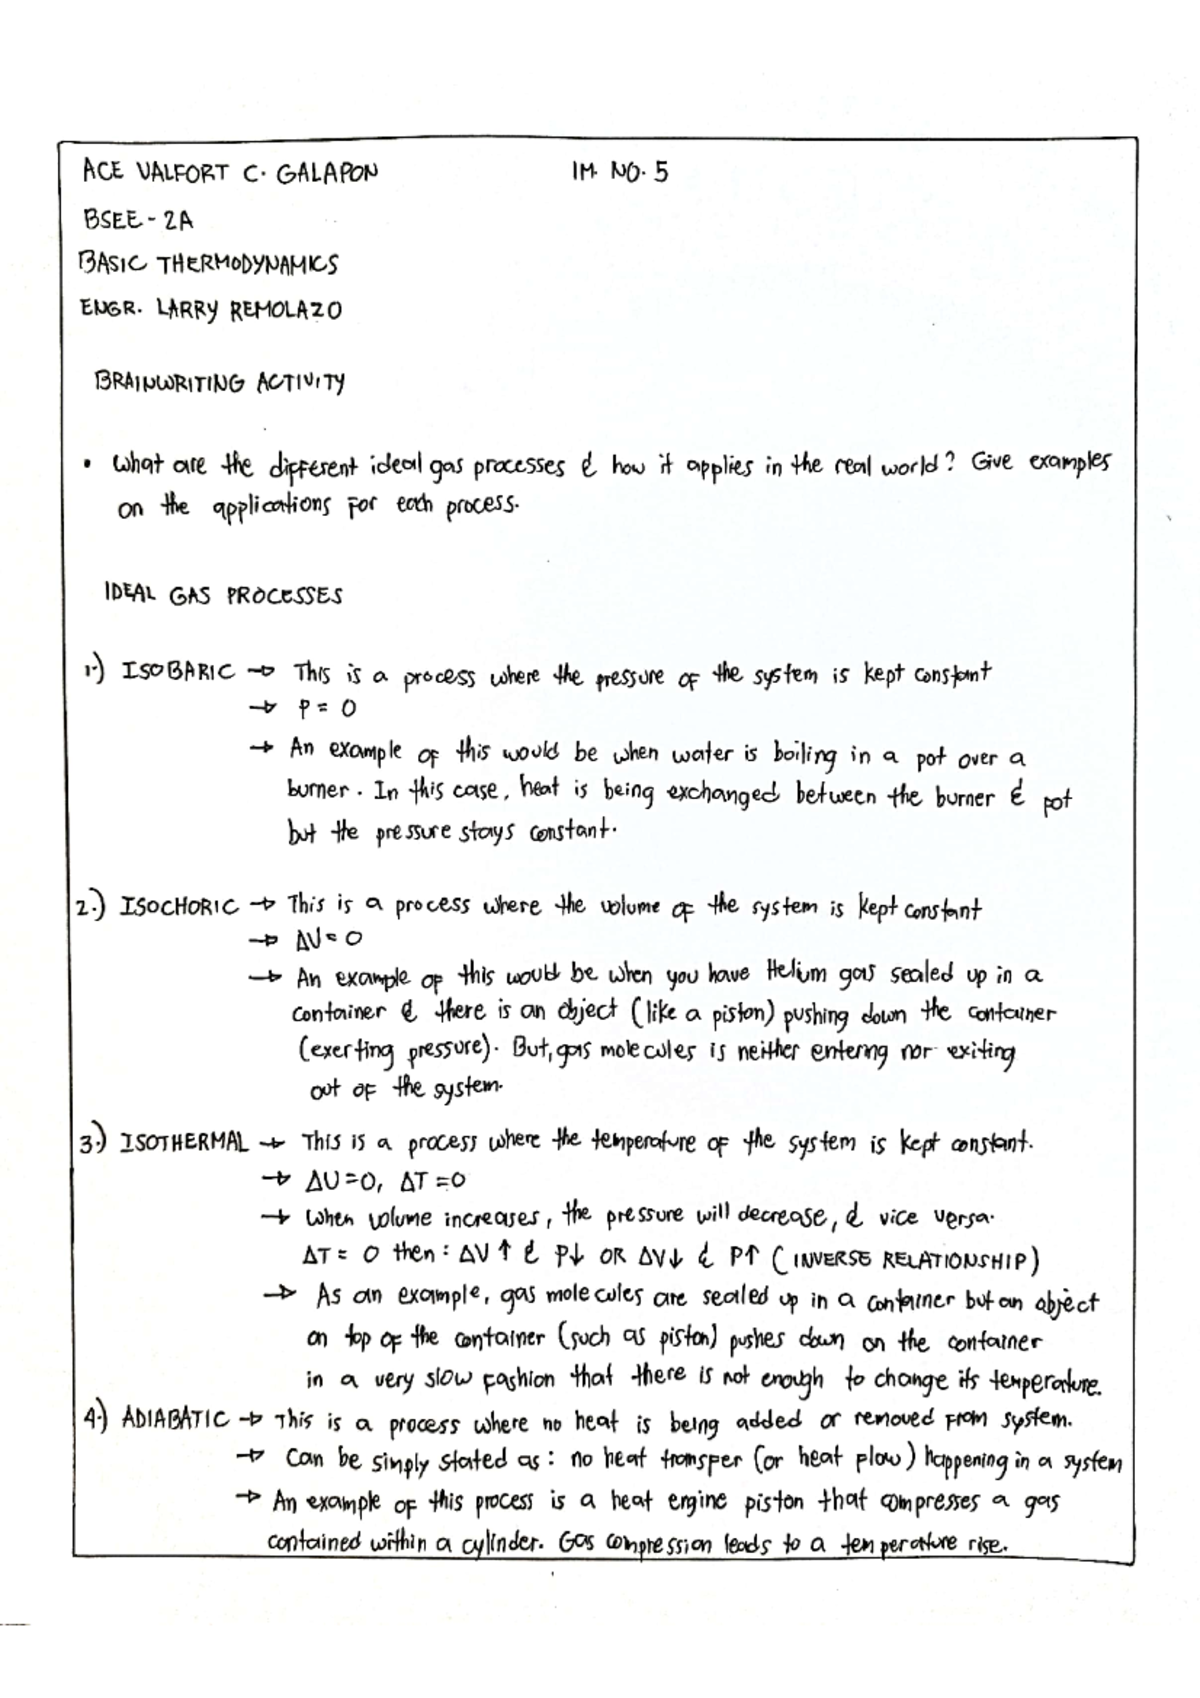 ACE VALFORT C. GALAPON IM. NO. 5
BSEE - 2A
BASIC THERMODYNAMICS
ENGR. LARRY REMOLAZO
BRAINWRITING ACTIVITY
• What are the different ideal gas processes & how it applies in the real world? Give examples
on the applications for each process.
IDEAL GAS PROCESSES
1.) ISOBARIC → This is a process where the pressure of the system is kept constant
→ P = 0
→ An example of this would be when water is boiling in a pot over a
burner. In this case, heat is being exchanged between the burner & pot
but the pressure stays constant.
2.) ISOCHORIC → This is a process where the volume of the system is kept constant
→ ΔV = 0
→ An example of this would be when you have Helium gas sealed up in a
container & there is an object (like a piston) pushing down the container
(exerting pressure). But, gas molecules is neither entering nor exiting
out of the system.
3.) ISOTHERMAL → This is a process where the temperature of the system is kept constant.
→ ΔU = 0, ΔT = 0
→ When volume increases, the pressure will decrease, & vice versa.
ΔT = 0 then : ΔV ↑ & P↓ OR ΔV↓ & P↑ (INVERSE RELATIONSHIP)
→ As an example, gas molecules are sealed up in a container but an object
on top of the container (such as piston) pushes down on the container
in a very slow fashion that there is not enough to change its temperature.
4.) ADIABATIC → This is a process where no heat is being added or removed from system.
→ Can be simply stated as : no heat transfer (or heat flow) happening in a system
→ An example of this process is a heat engine piston that compresses a gas
contained within a cylinder. Gas compression leads to a temperature rise.